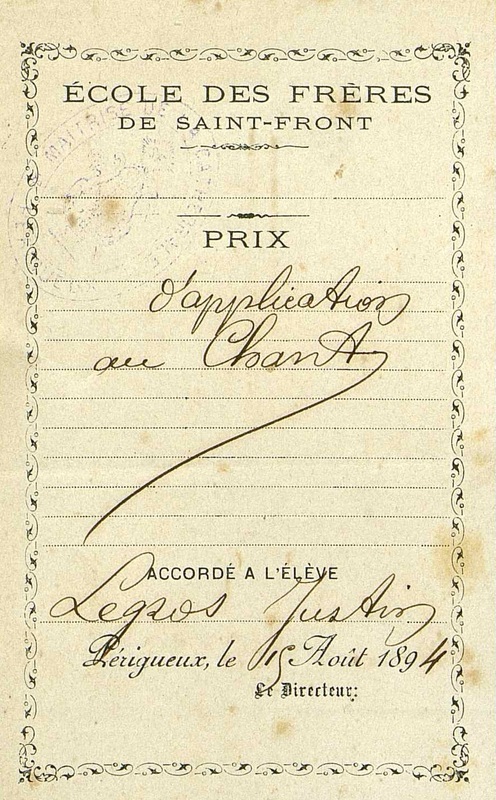 ÉCOLE DES FRÈRES
DE SAINT-FRONT
MAITRISE
PRIX
d'application
au Chant
ACCORDÉ A L'ÉLÈVE
Legros Justin
Périgueux, le 15 Août 1894
Le Directeur: